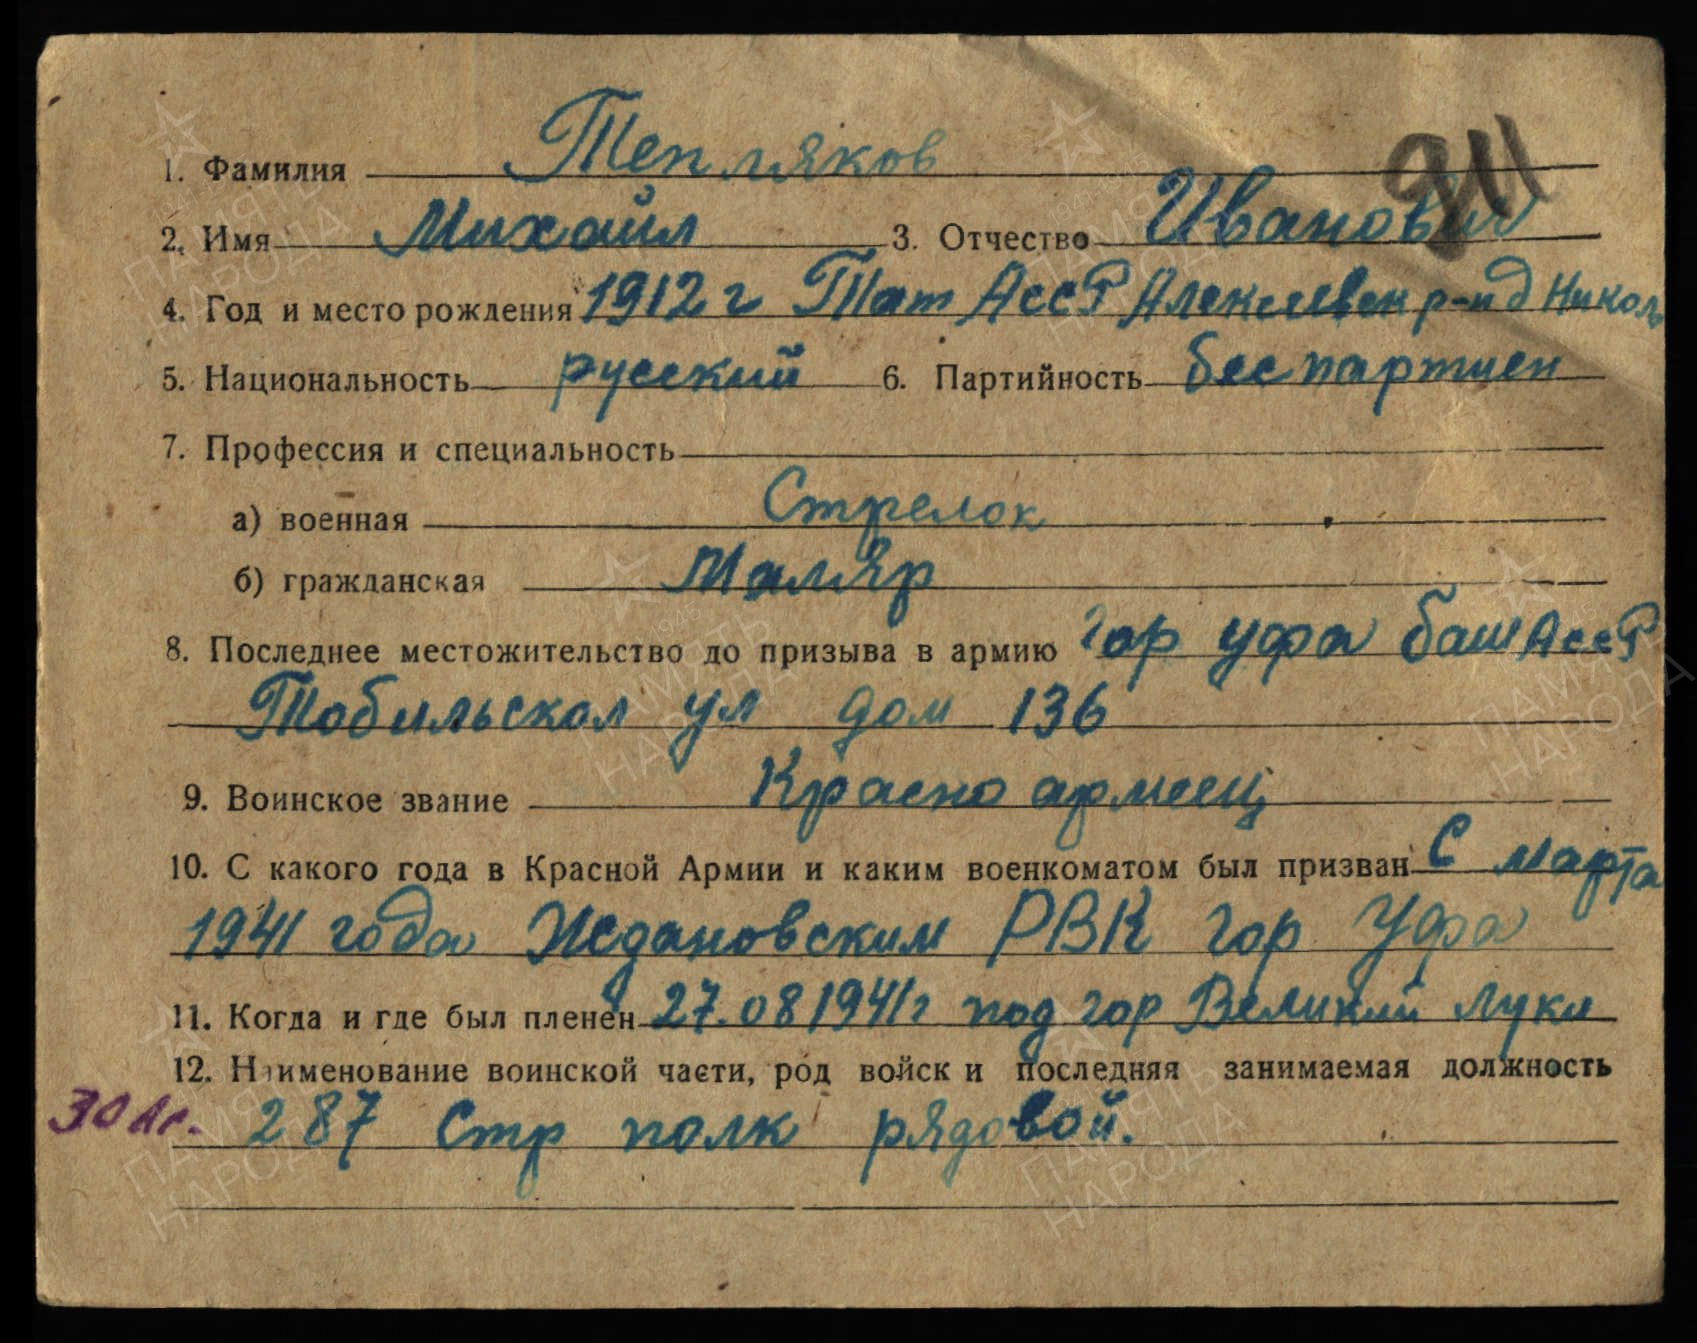 911
1. Фамилия Тепляков
2. Имя Михаил 3. Отчество Иванович
4. Год и место рождения 1912 г Тат АссР Алексеевск р-н д Николь
5. Национальность русский 6. Партийность беспартиен
7. Профессия и специальность
а) военная Стрелок
б) гражданская Маляр
8. Последнее местожительство до призыва в армию гор уфа баш АссР
Тобильская ул дом 136
9. Воинское звание Красно армеец
10. С какого года в Красной Армии и каким военкоматом был призван С марта
1941 года Ждановским РВК гор Уфа
11. Когда и где был пленен 27.08 1941 г под гор Великий Луки
12. Наименование воинской части, род войск и последняя занимаемая должность
287 Стр полк рядовой.
ПАМЯТЬ НАРОДА